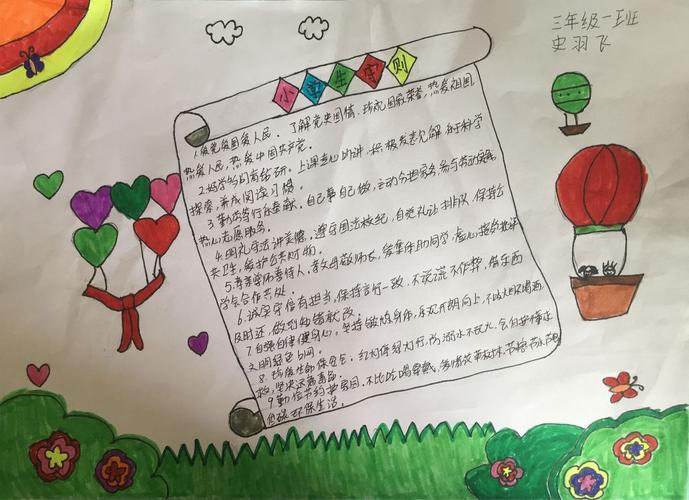 三年级一班
史羽飞
小学生守则
1.爱党爱国爱人民。了解党史国情,珍视国家荣誉,热爱祖国,
热爱人民,热爱中国共产党。
2.好学多问肯钻研。上课专心听讲,积极发表见解,乐于科学
探索,养成阅读习惯。
3.勤劳笃行乐奉献。自己事自己做,主动分担家务,参与劳动实践,
热心志愿服务。
4.明礼守法讲美德。遵守国法校纪,自觉礼让排队,保持公
共卫生,爱护公共财物。
5.孝亲尊师善待人。孝父母敬师长,爱集体助同学,虚心接受批评,
学会合作共处。
6.诚实守信有担当,保持言行一致,不说谎不作弊,借东西
及时还,做到知错就改。
7.自强自律健身心。坚持锻炼身体,乐观开朗向上,不吸烟不喝酒,
文明绿色上网。
8.珍爱生命保安全。红灯停绿灯行,防溺水不玩火,会自护懂求
救,坚决远离毒品。
9.勤俭节约护家园。不比吃喝穿戴,爱惜花草树木,节粮节水节电,
低碳环保生活。